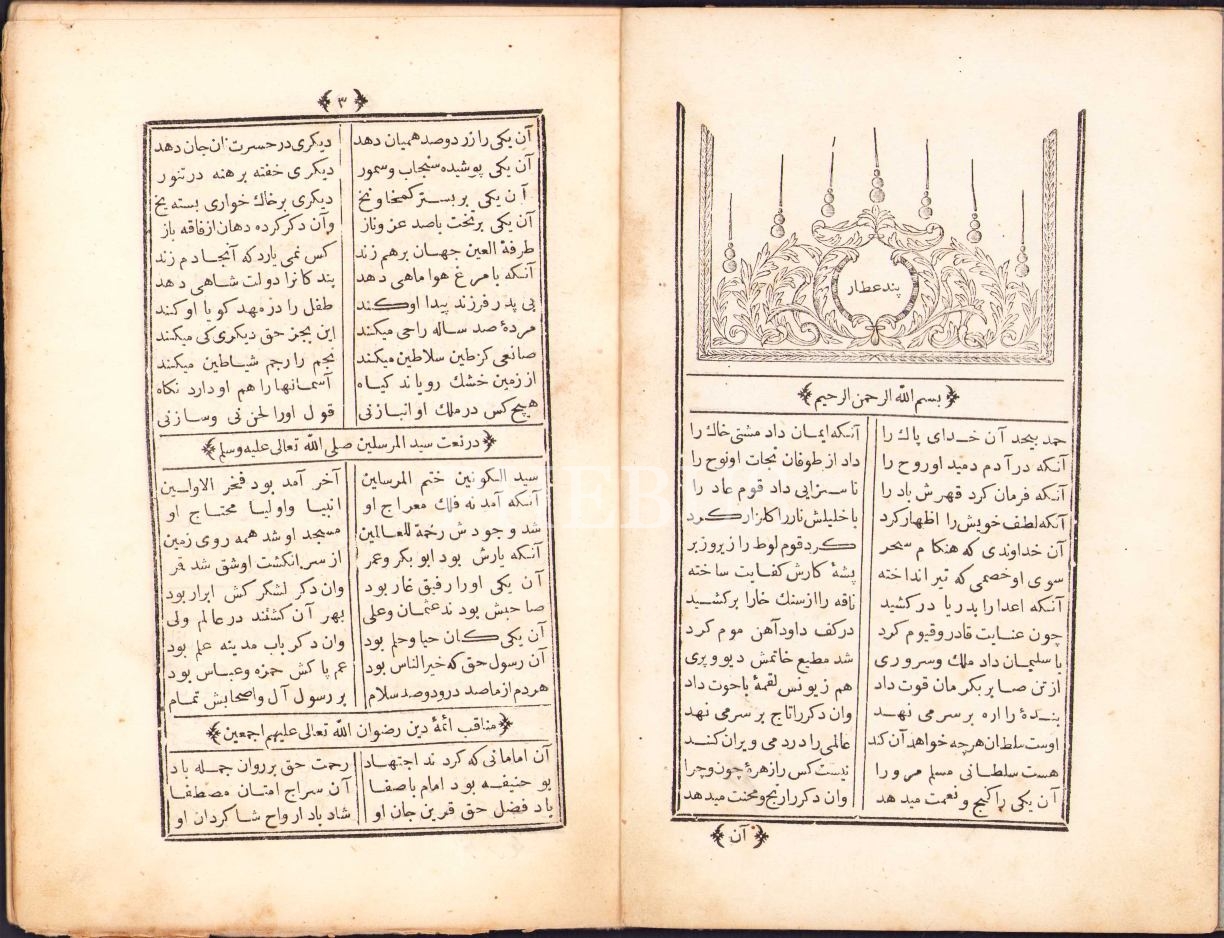 پند عطار
﴿بسم الله الرحمن الرحيم﴾
حمد بیحد آن خدای پاك را آنکه ایمان داد مشتی خاك را
آنکه در آدم دمید او روح را داد از طوفان نجات او نوح را
آنکه فرمان کرد قهرش باد را تا سزایی داد قوم عاد را
آنکه لطف خویش را اظهار کرد با خلیلش نار را کلزار کرد
آن خداوندی که هنکام سحر کرد قوم لوط را زیر وزبر
سوی او خصمی که تیر انداخته پشهٔ کارش کفایت ساخته
آنکه اعدا را بدریا در کشید ناقه را از سنك خارا بر کشید
چون عنایت قادر وقیوم کرد در کف داود آهن موم کرد
با سلیمان داد ملك وسروری شد مطیع خاتمش دیو و پری
از تن صابر بکرمان قوت داد هم ز یونس لقمهٔ باحوت داد
بندهٔ را اره بر سر می نهد وان دکر را تاج بر سر می نهد
اوست سلطان هر چه خواهد آن کند عالمی را در دمی ویران کند
هست سلطانی مسلم مر و را نیست کس را زهرهٔ چون وچرا
آن یکی را کنج و نعمت میدهد وان دکر را رنج و محنت میدهد
﴿آن﴾
﴿۳﴾
آن یکی را زر دو صد همیان دهد دیکری در حسرت نان جان دهد
آن یکی پوشیده سنجاب وسمور دیکری خفته برهنه در تنور
آن یکی بر بستر کمخا و نخ دیکری بر خاك خواری بسته یخ
آن یکی بر تخت با صد عز وناز وآن دکر کرده دهان از فاقه باز
طرفة العین جهان برهم زند کس نمی یارد که آنجا دم زند
آنکه با مرغ هوا ماهی دهد بندکانرا دولت شاهی دهد
بی پدر فرزند پیدا او کند طفل را در مهد کویا او کند
مردهٔ صد ساله را حی میکند این بجز حق دیکری کی میکند
صانعی کز طین سلاطین میکند نجم را رجم شیاطین میکند
از زمین خشك رویاند کیاه آسمانها را هم او دارد نکاه
هیچ کس در ملك او انبازنی قول اورا لحن نی وسازنی
﴿در نعت سید المرسلین صلی الله تعالی علیه وسلم﴾
سید الکونین ختم المرسلین آخر آمد بود فخر الاولین
آنکه آمد نه فلك معراج او انبیا واولیا محتاج او
شد وجودش رحمة للعالمین مسجد او شد همه روی زمین
آنکه یارش بود ابو بکر وعمر از سر انکشت او شق شد قمر
آن یکی اورا رفیق غار بود وان دکر لشکر کش ابرار بود
صاحبش بودند عثمان وعلی بهر آن کشتند در عالم ولی
آن یکی کان حیا وحلم بود وان دکر باب مدینه علم بود
آن رسول حق که خیر الناس بود عم پاکش حمزه وعباس بود
هردم از ما صد درود وصد سلام بر رسول آل واصحابش تمام
﴿مناقب ائمهٔ دین رضوان الله تعالی علیهم اجمعین﴾
آن امامانی که کردند اجتهاد رحمت حق بر روان جمله باد
بو حنیفه بود امام باصفا آن سراج امتان مصطفا
باد فضل حق قرین جان او شاد باد ارواح شاکردان او